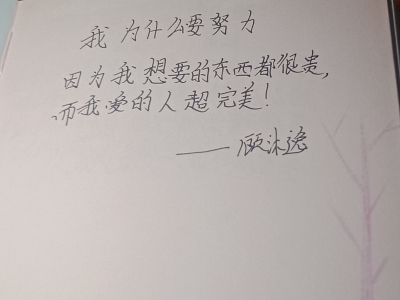 我为什么要努力
因为我想要的东西都很贵,
而我爱的人超完美!
——顾沐逸